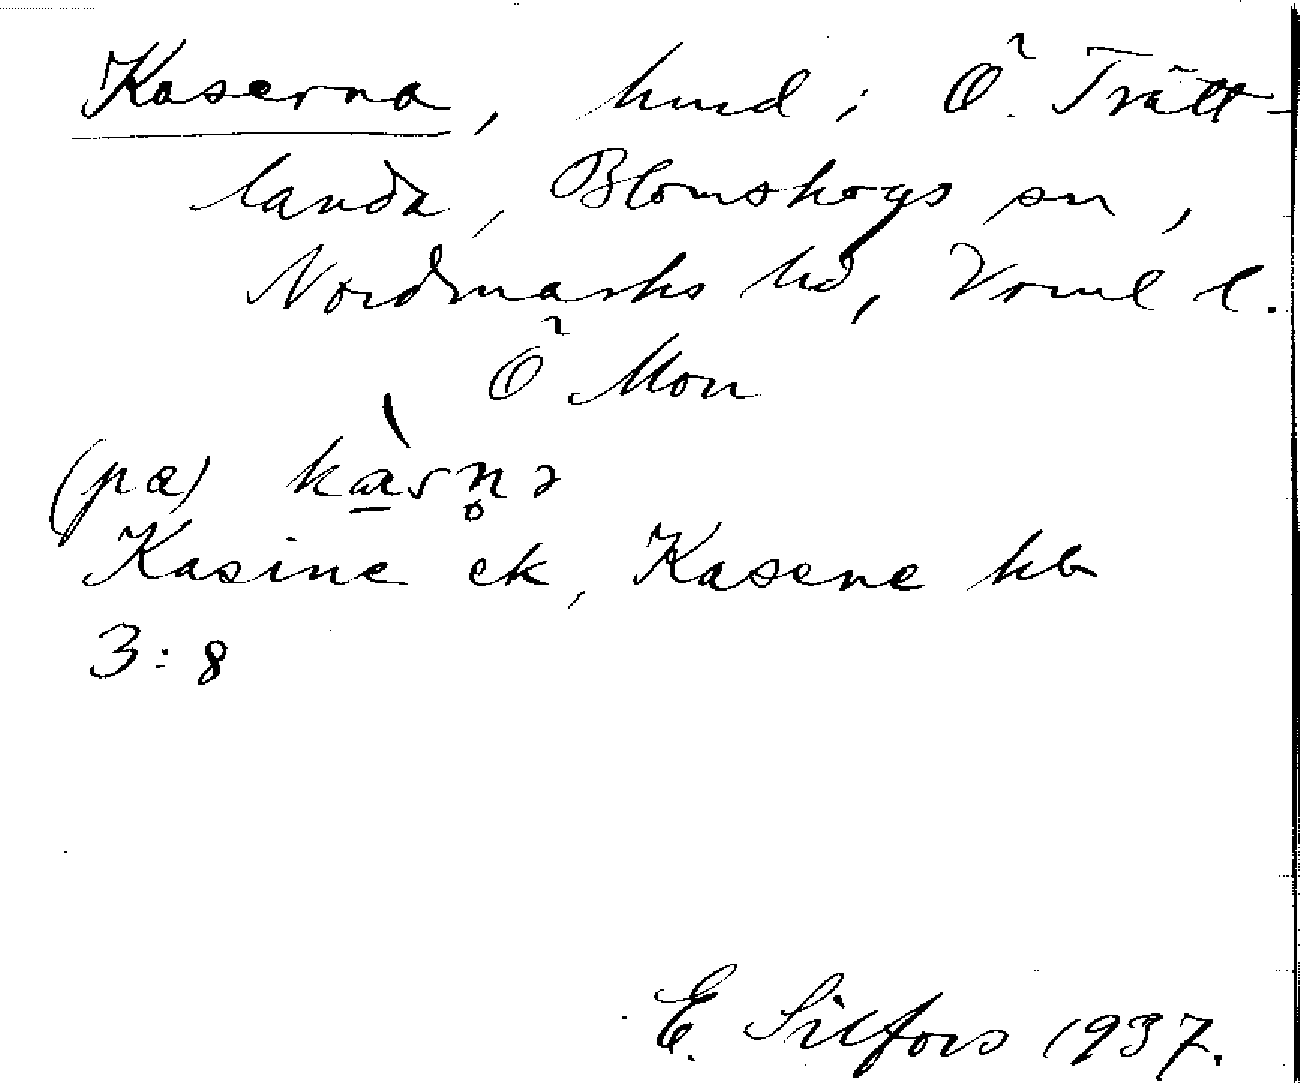 Kaserna, hmd i Ö. Trätt-
landa, Blomskogs sn,
Nordmarks hd, Vrml l.
Ö Mon
(pa)
Kasine ek, Kasene kb
3:8
E. Silfors 1937.